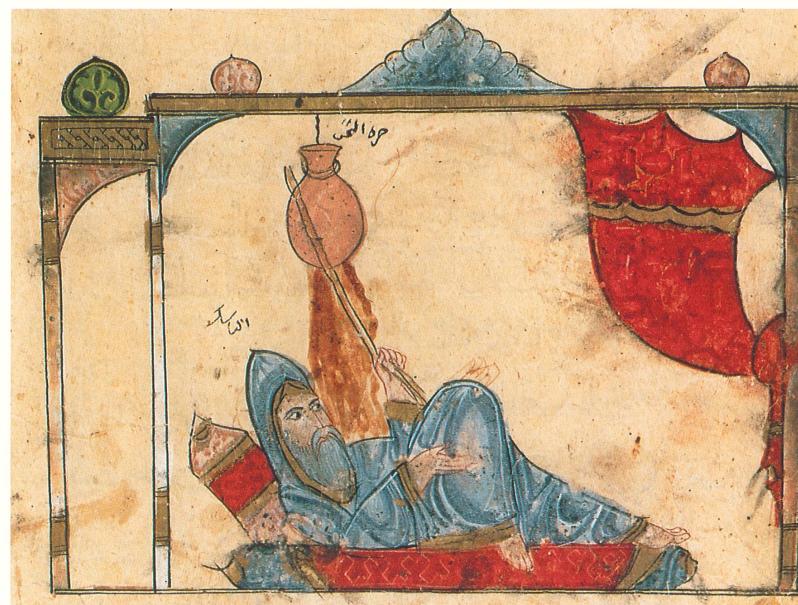 جرة السمن
الناسك